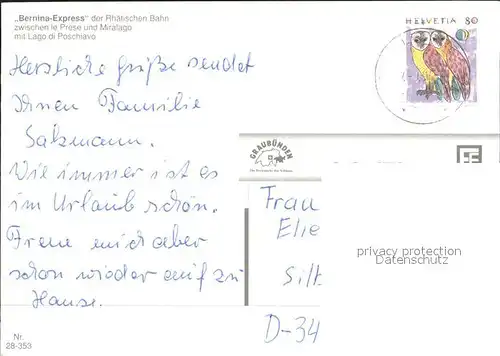 „Bernina-Express“ der Rhätischen Bahn
zwischen le Prese und Miralago
mit Lago di Poschiavo
HELVETIA 80
Herzliche Grüße sendet
Ihnen Familie
Salzmann.
Wie immer ist es
im Urlaub schön.
Freue mich aber
schon wieder auf zu
Hause.
GRAUBÜNDEN
Frau
Elie
privacy protection
Datenschutz
Silt
D-34
Nr.
28-353